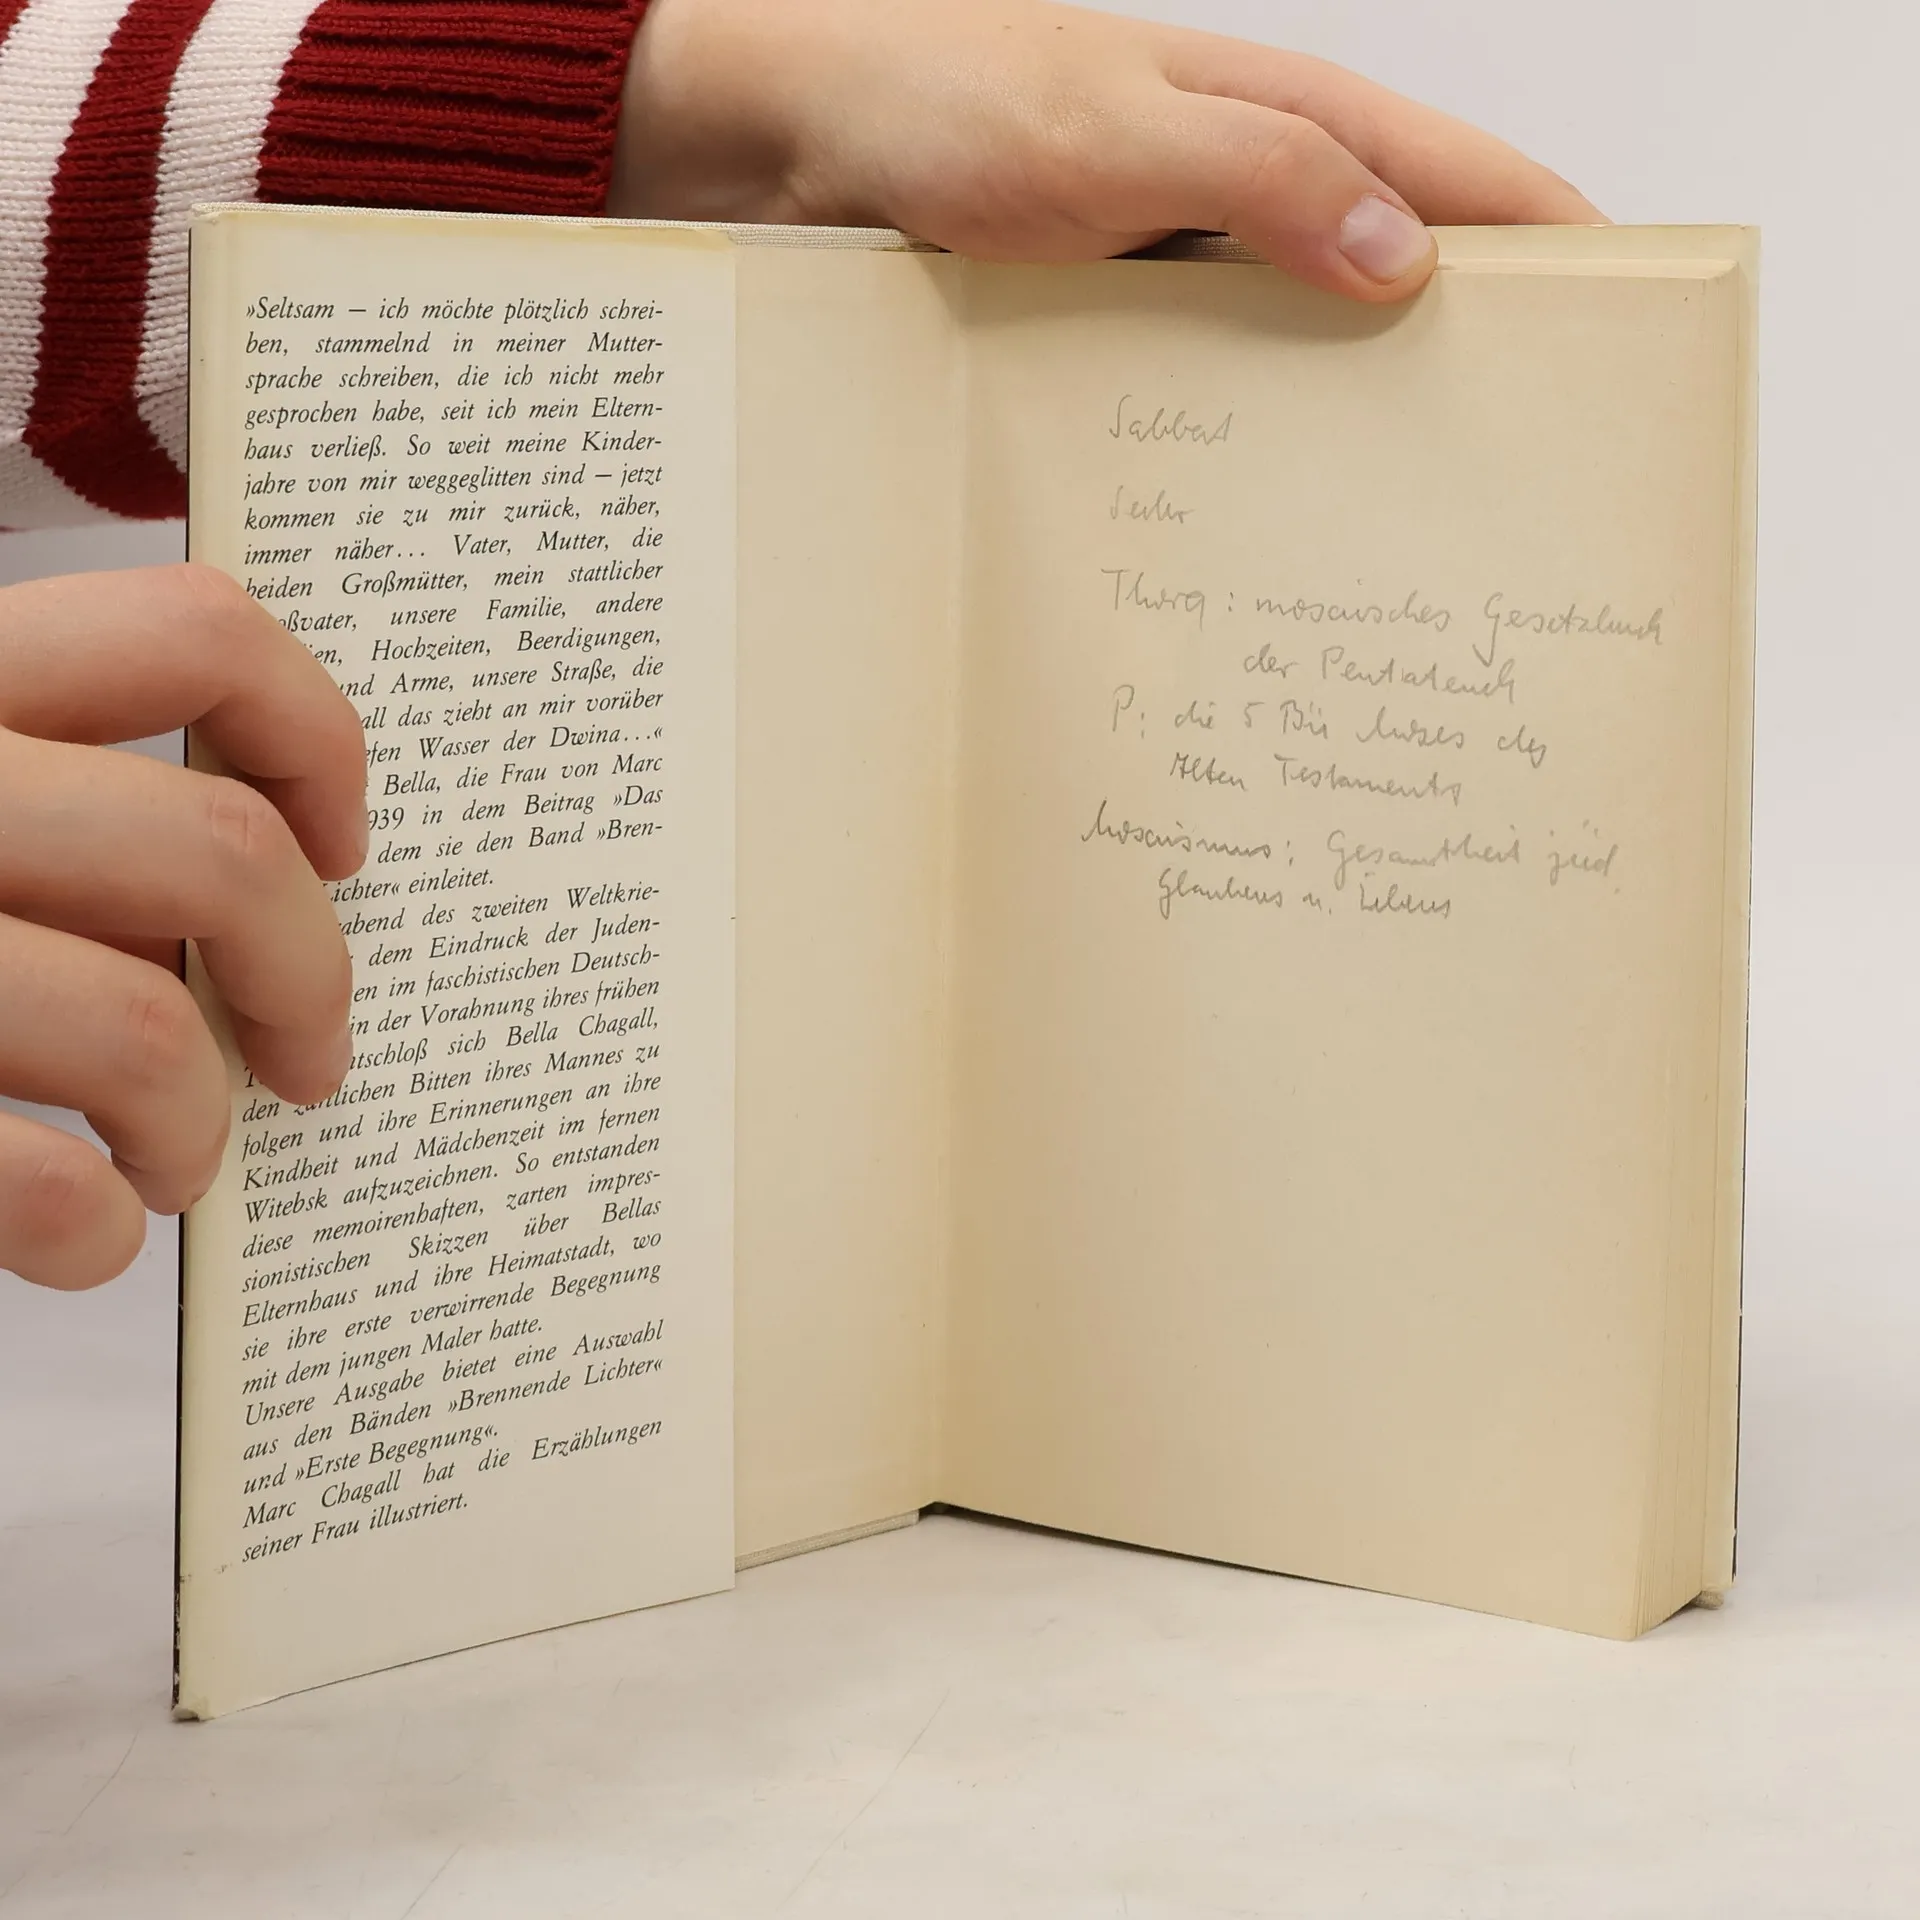 »Seltsam – ich möchte plötzlich schrei-
ben, stammelnd in meiner Mutter-
sprache schreiben, die ich nicht mehr
gesprochen habe, seit ich mein Eltern-
haus verließ. So weit meine Kinder-
jahre von mir weggeglitten sind – jetzt
kommen sie zu mir zurück, näher,
immer näher... Vater, Mutter, die
beiden Großmütter, mein stattlicher
oßvater, unsere Familie, andere
en, Hochzeiten, Beerdigungen,
und Arme, unsere Straße, die
all das zieht an mir vorüber
efen Wasser der Dwina...«
Bella, die Frau von Marc
939 in dem Beitrag »Das
dem sie den Band »Bren-
Lichter« einleitet.
abend des zweiten Weltkrie-
dem Eindruck der Juden-
en im faschistischen Deutsch-
in der Vorahnung ihres frühen
ntschloß sich Bella Chagall,
den zärtlichen Bitten ihres Mannes zu
folgen und ihre Erinnerungen an ihre
Kindheit und Mädchenzeit im fernen
Witebsk aufzuzeichnen. So entstanden
diese memoirenhaften, zarten impres-
sionistischen Skizzen über Bellas
Elternhaus und ihre Heimatstadt, wo
sie ihre erste verwirrende Begegnung
mit dem jungen Maler hatte.
Unsere Ausgabe bietet eine Auswahl
aus den Bänden »Brennende Lichter«
und »Erste Begegnung«.
Marc Chagall hat die Erzählungen
seiner Frau illustriert.
Sabbat
Thora: mosaisches Gesetzbuch
der Pentateuch
P: die 5 Bü Moses des
Alten Testaments
Mosaismus: Gesamtheit jüd.
Glaubens u. Lebens